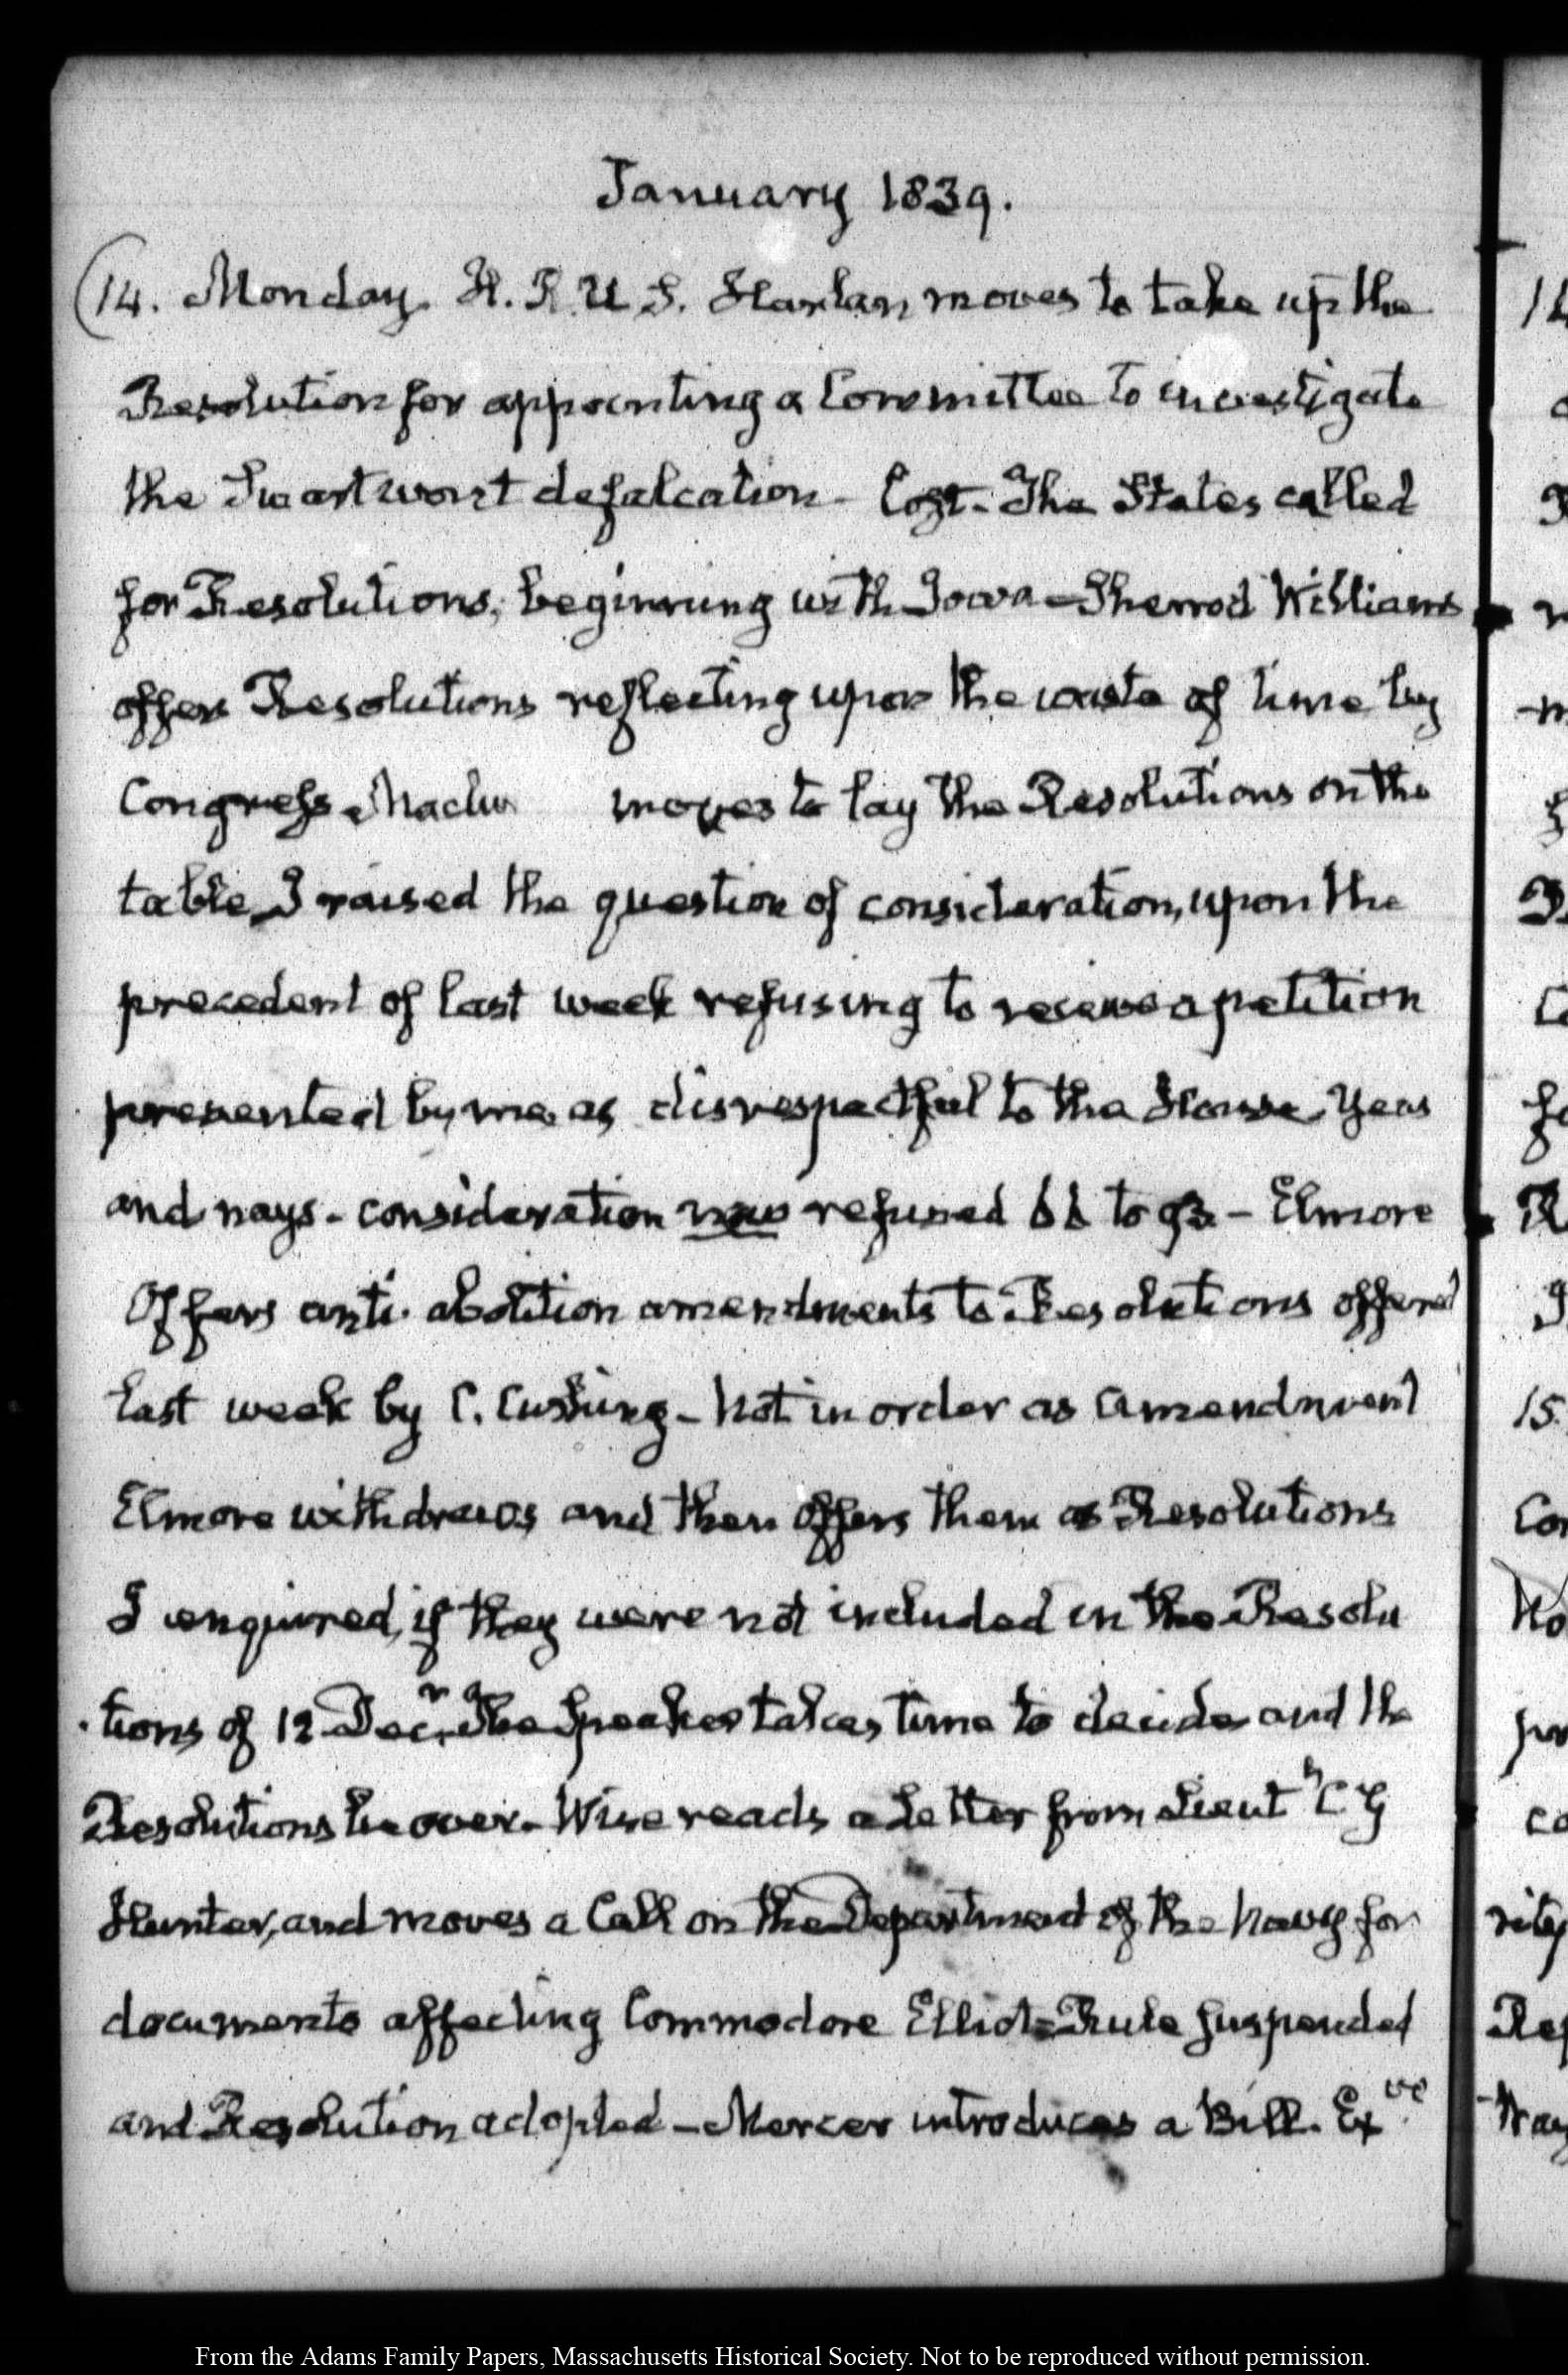 January 1839.
(14. Monday. H. R. U S. Harlan moves to take up the
Resolution for appointing a Committee to investigate
the Swartwout defalcation - Lost. The States called
for Resolutions, beginning with Iowa - Sherrod Williams
offers Resolutions reflecting upon the waste of time by
Congress. moves to lay the Resolutions on the
table. I raised the question of consideration, upon the
precedent of last week refusing to receive a petition
presented by me as disrespectful to the House. Yeas
and nays - consideration now refused 66 to 93 - Elmore
Offers anti-abolition amendments to Resolutions offered
last week by C. Cushing - Not in order as amendment
Elmore withdraws and then offers them as Resolutions
I enquired, if they were not included in the Resolu
tions of 12 Decr. The Speaker takes time to decide and the
Resolutions lie over. Wise reads a Letter from Lieut C G
Hunter, and moves a Call on the Department of the Navy for
documents affecting Commodore Elliot - Rule suspended
and Resolution adopted - Mercer introduces a Bill. Exve.
From the Adams Family Papers, Massachusetts Historical Society. Not to be reproduced without permission.